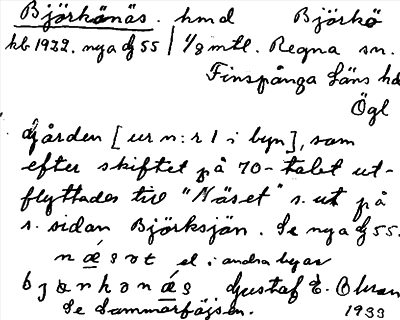 Björkönäs. hmd Björkö
kb 1922. nya G 55 1/8 mtl. Regna sn.
Finspånga läns hd
Ögl
Gården [ur n:r 1 i byn], som
efter skiftet på 70-talet ut-
flyttades till "Näset" s. ut på
s. sidan Björksjön. Se nya G 55.
næsət el i andra byar
bjœnkənæs Gustaf E. Olsson
Se Sammanföjsen. 1933